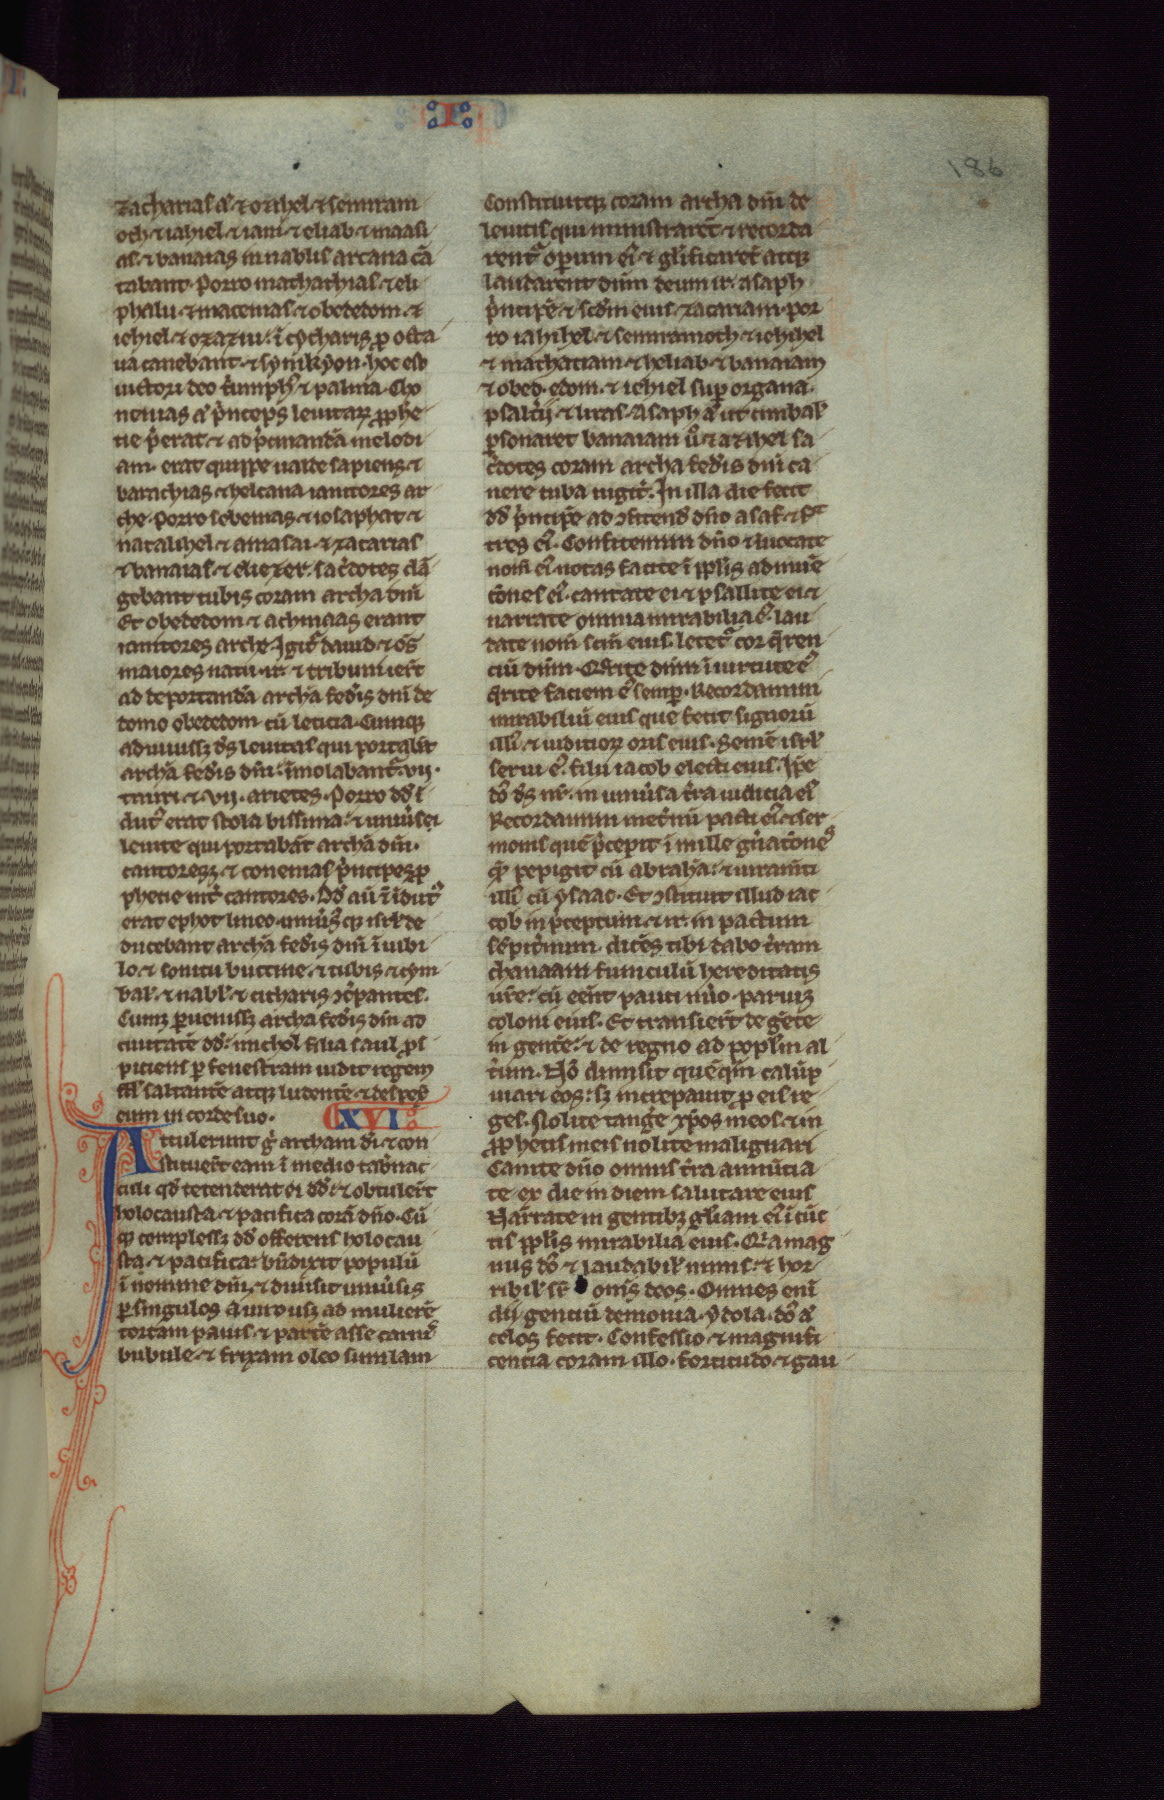 I
186
zacharias aũ ⁊ ozihel ⁊ semiram
och ⁊ iahiel ⁊ iani ⁊ eliab ⁊ maasi
as ⁊ banaias in nablis arcana cã
tabant. Porro mathathias ⁊ eli
phalu ⁊ macenias ⁊ obededom ⁊
iehiel ⁊ ozaziu ĩ cytharis ꝓ octa
ua canebant ⁊ synikyon. hoc est
uictori deo triumphꝰ ⁊ palma. Cho
nenias aũ pͥnceps leuitaꝝ ꝓphe
tie pͥerat ⁊ ad pͥcinandã melodi
am. erat quippe ualde sapiens ⁊
barachias ⁊ helcana ianitores ar
che. Porro sebenias ⁊ iosaphat ⁊
natanahel ⁊ amasai ⁊ zacarias
⁊ banaias ⁊ eliezer. sac̃dotes clã
gebant tubis coram archa dñi
Et obededom ⁊ achimaas erant
ianitores arche. Igit̃ dauid ⁊ oñs
maiores natu isrł ⁊ tribuni ier̃t
ad deportandã archã fedis dñi de
domo obededom cũ leticia. Cumqꝫ
adiuuissꝫ dñs leuitas qui portabãt
archã fedis dñi. ĩmolabant̃ .vij.
tauri ⁊ .vij. arietes. Porro dđ ĩ
dut̃ erat stola bissina. ⁊ uniũsi
leuite qui portabãt archã dñi.
cantoresqꝫ ⁊ conenias pͥnceps ꝓ
phetie int̃ cantores. Dđ aũ ⁊ ĩdutꝰ
erat ephot lineo. uniũsqꝫ isrł de
ducebant archã fedis dñi ĩ iubi
lo. ⁊ sonitu buccine ⁊ tubis ⁊ cym
bał. ⁊ nabł. ⁊ citharis ꝯc̃pantes.
Cumqꝫ ꝑuenissꝫ archa fedis dñi ad
ciuitatẽ dđ. michol filia saul ꝓs
piciens ꝑ fenestram uidit regem
dđ saltantẽ atqꝫ ludentẽ. ⁊ despex̃
eum in corde suo. XVI
Attulerunt g̃ archam di ⁊ con
stituer̃t eam ĩ medio tab̃nac
culi qđ tetenderat ei dđ. ⁊ obtuler̃t
holocausta ⁊ pacifica corã dño. Cũ
qꝫ complessꝫ dđ offerens holocau
sta ⁊ pacifica. bñdixit populũ
ĩ nomine dñi. ⁊ diuisit uniũsis
ꝑ singulos a uiro usqꝫ ad mulierẽ
tortam panis. ⁊ partẽ asse carnis
bubule ⁊ frixam oleo similam
Constituitqꝫ coram archa dñi de
leuitis qui ministrarẽt ⁊ recorda
rent̃ operum eiꝰ ⁊ gl̃ificarẽt atqꝫ
laudarent dñm deum isrł. asaph
pͥncipẽ ⁊ scđm eius zacariam. por
ro iahihel ⁊ semiramoth ⁊ iehihel
⁊ mathatiam ⁊ heliab ⁊ banaiam
⁊ obed edom. ⁊ iehiel sup organa.
psaltij ⁊ liras. Asaph aũ ut cimbał
ꝑsonaret banaiam ũo ⁊ azihel sa
c̃dotes coram archa fedis dñi ca
nere tuba iugit̃. In illa die fecit
dđ pͥncipẽ ad ꝯfitend dño asaf ⁊ fͣ
tres eiꝰ. Confitemini dño ⁊ ĩuocate
nom̃ eiꝰ notas facite ĩ pplis adinuẽ
c̃ones eiꝰ. cantate ei ⁊ psallite ei ⁊
narrate omnia mirabilia eiꝰ. lau
date nom̃ scm̃ eius. letet̃ cor q̃ren
ciũ dñm. Querite dñm ĩ uirtutẽ eiꝰ
q̃rite faciem eiꝰ semp̃. Recordamini
mirabiliũ eius que fecit signorũ
illiꝰ ⁊ iuditioꝝ oris eius. Semẽ isrł
serui eiꝰ. filii iacob electi eius. Ipẽ
dñs ds nr̃. in uniũsa t̃ra iudicia eiꝰ
Recordamini inet̃nũ pacti eiꝰ ⁊ ser
monis quẽ pͥcepit ĩ mille gñac̃ones
qꝫ pepigit cũ abrahã. ⁊ iuramti
illiꝰ cũ ysaac. Et ꝯstituit illud iac
cob in pͥceptum ⁊ isrł in pactum
sẽpit̃num. dicẽs tibi dabo t̃ram
chanaam funiculũ hereditatis
ur̃e. cũ eẽnt pauci nũo. parui ⁊
coloni eius. Et transier̃t de gẽte
in gentẽ. ⁊ de regno ad popl̃m al
t̃um. Nõ dimisit quẽqm̃ calũp
niari eos. sꝫ increpauit ꝓ eis re
ges. Nolite tang̃e xp̃os meos. ⁊ in
ꝓphetis meis nolite malignari
Canite dño omnis t̃ra annũtia
te ex die in diem salutare eius
Narrate in gentibꝫ gl̃iam eiꝰ ĩ cũc
tis pplis mirabilia eius. Quia mag
nus dñs ⁊ laudabił nimis. ⁊ hor
ribił sr̃ omñs deos. Omnes eni
dij genciũ demonia. ydola. dñs aũ
celos fecit. Confessio ⁊ magnifi
centia coram illo. fortitudo ⁊ gau